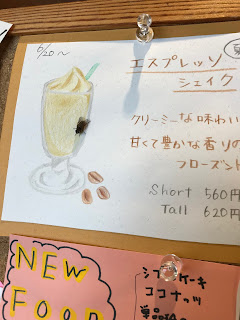 6/20~
エスプレッソ
シェイク
クリーミーな味わい
甘くて豊かな香りの
フローズン
Short 560円
Tall 620円
NEW
FOOD
シフォンケーキ
ココナッツ
単品